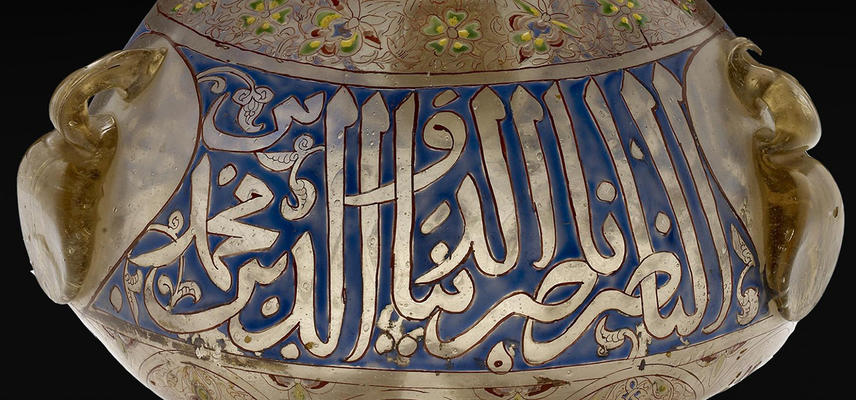 الناصر ناصر الدنيا والدين محمد